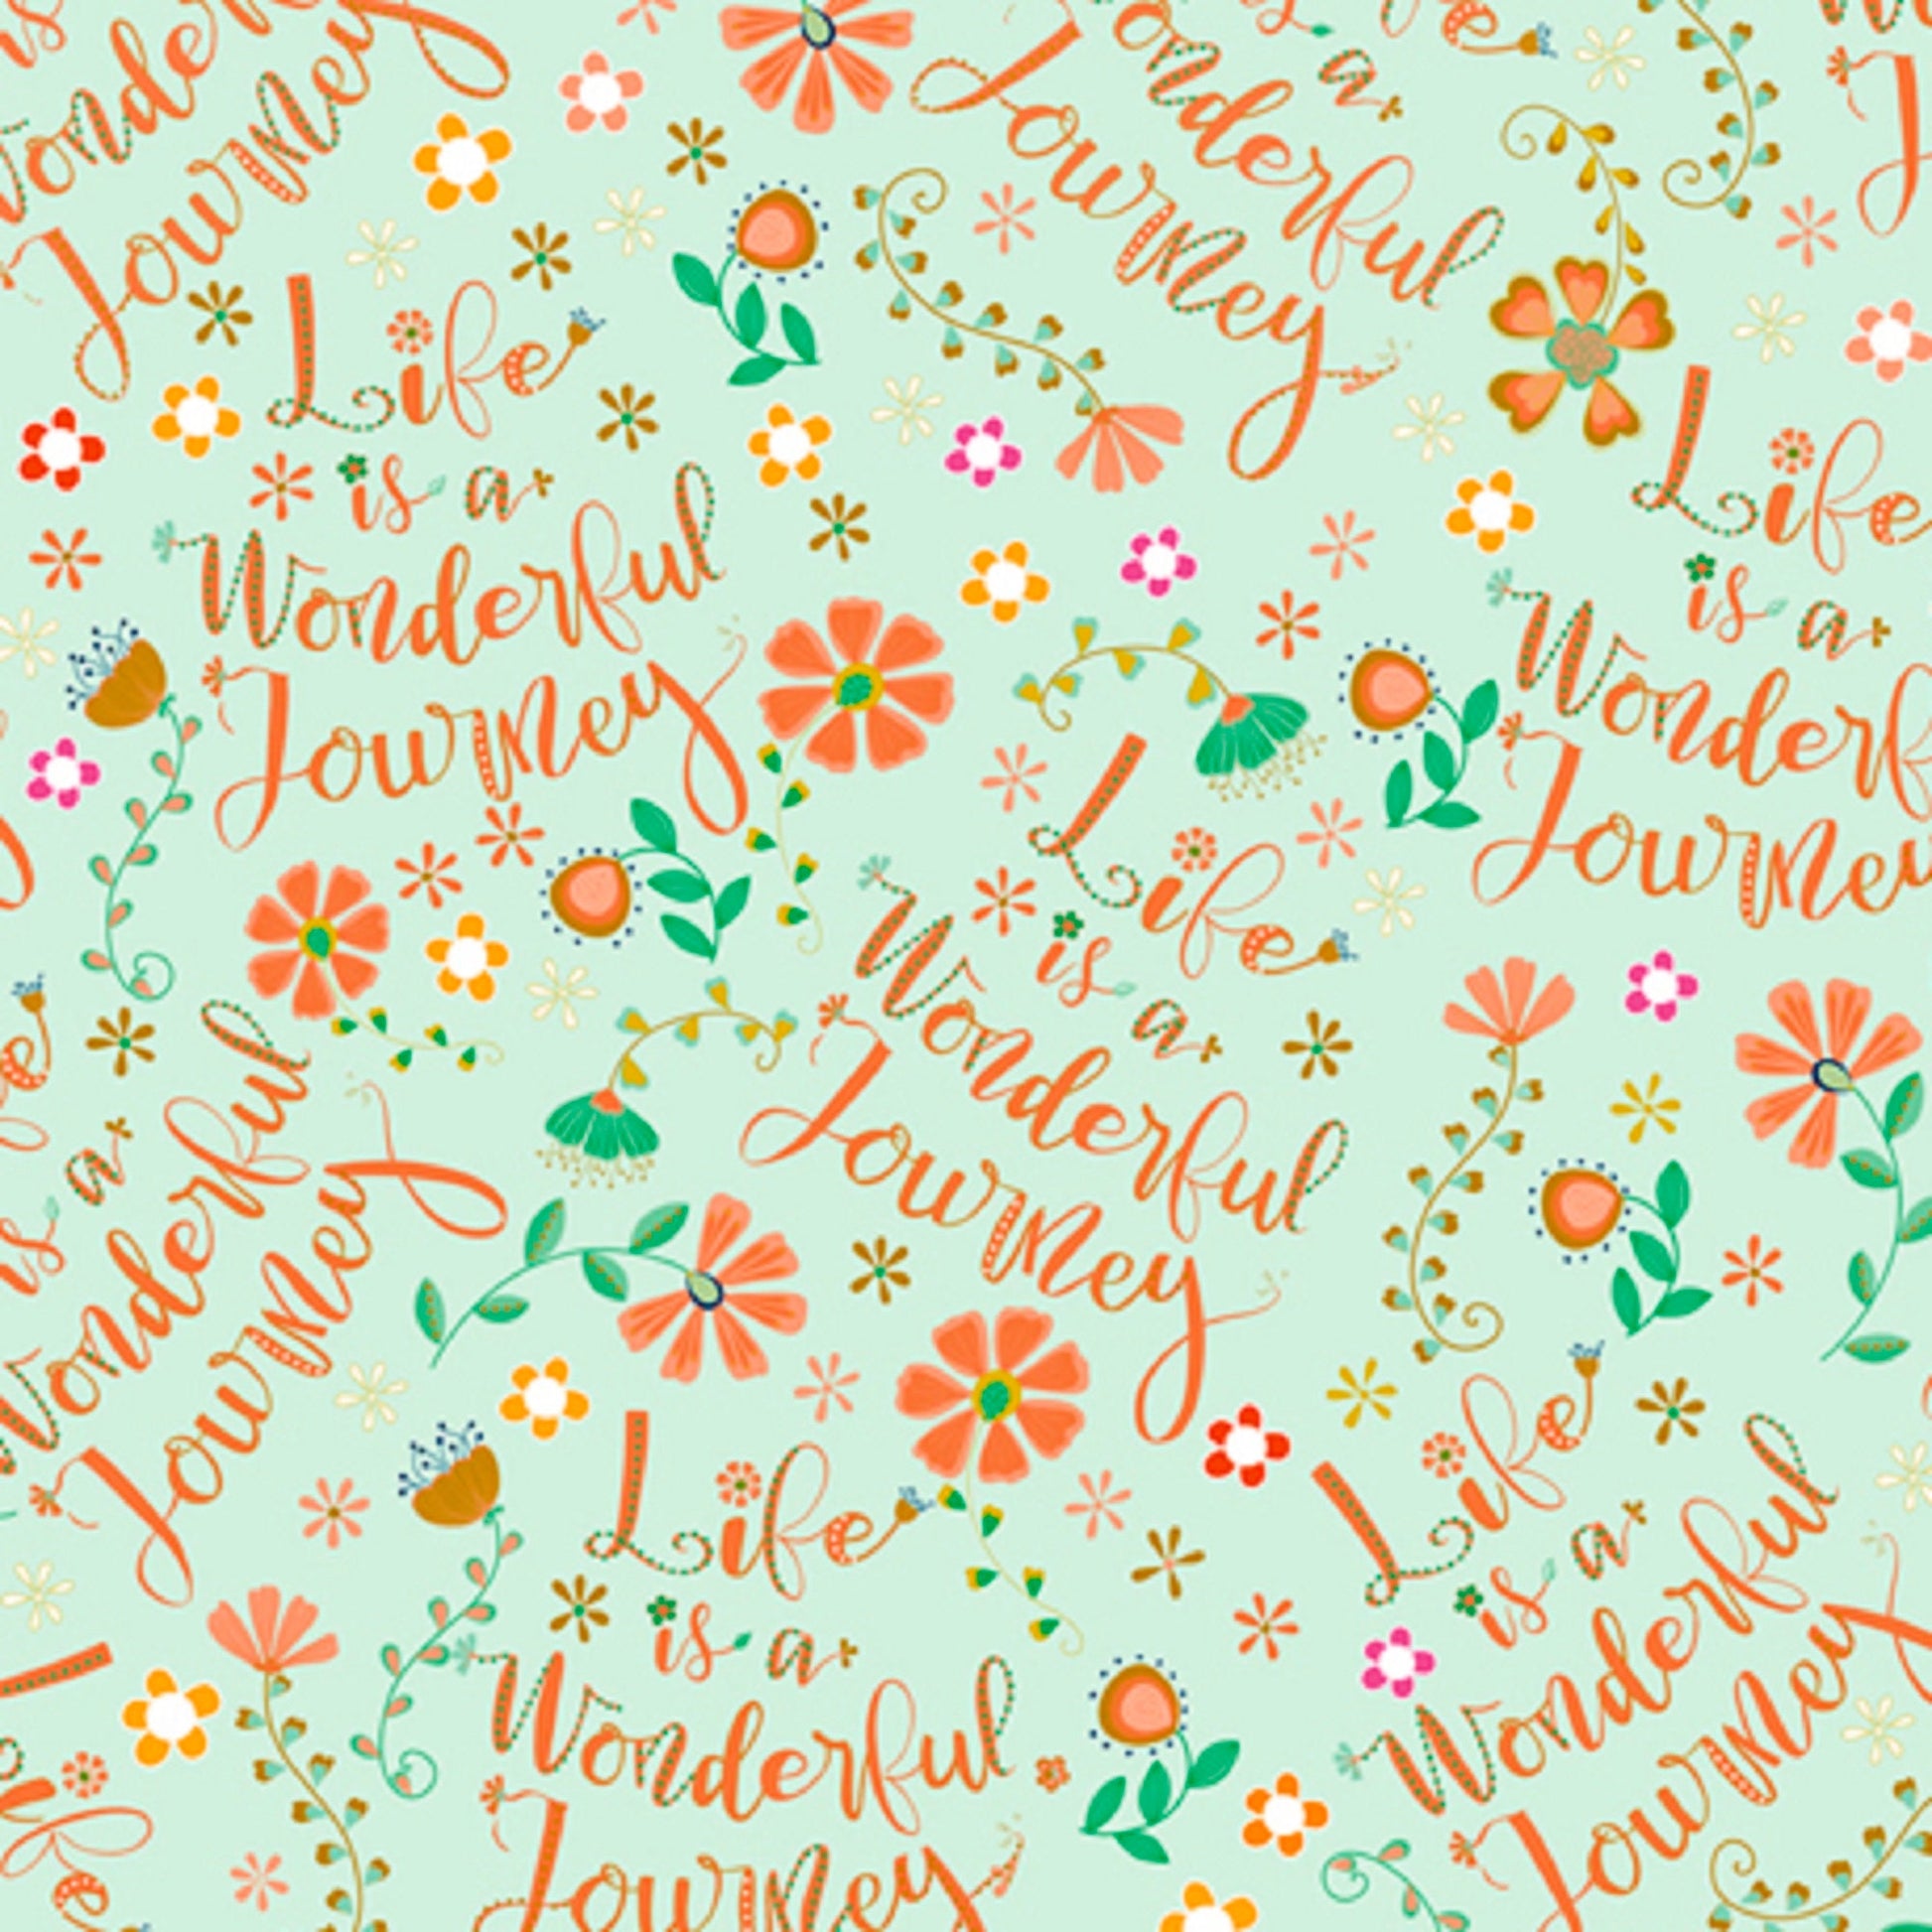 is
Wonde
Journey
is a
Wonderful
Journey
Life
is a
Wonderful
Journey
Life
is a
Wonderf
Journey
Life
is a
Wonderful
Journey
is a
Wonderful
Journey
Life
is a
Wonderful
Journey
Life
is a
Wonderful
Journey